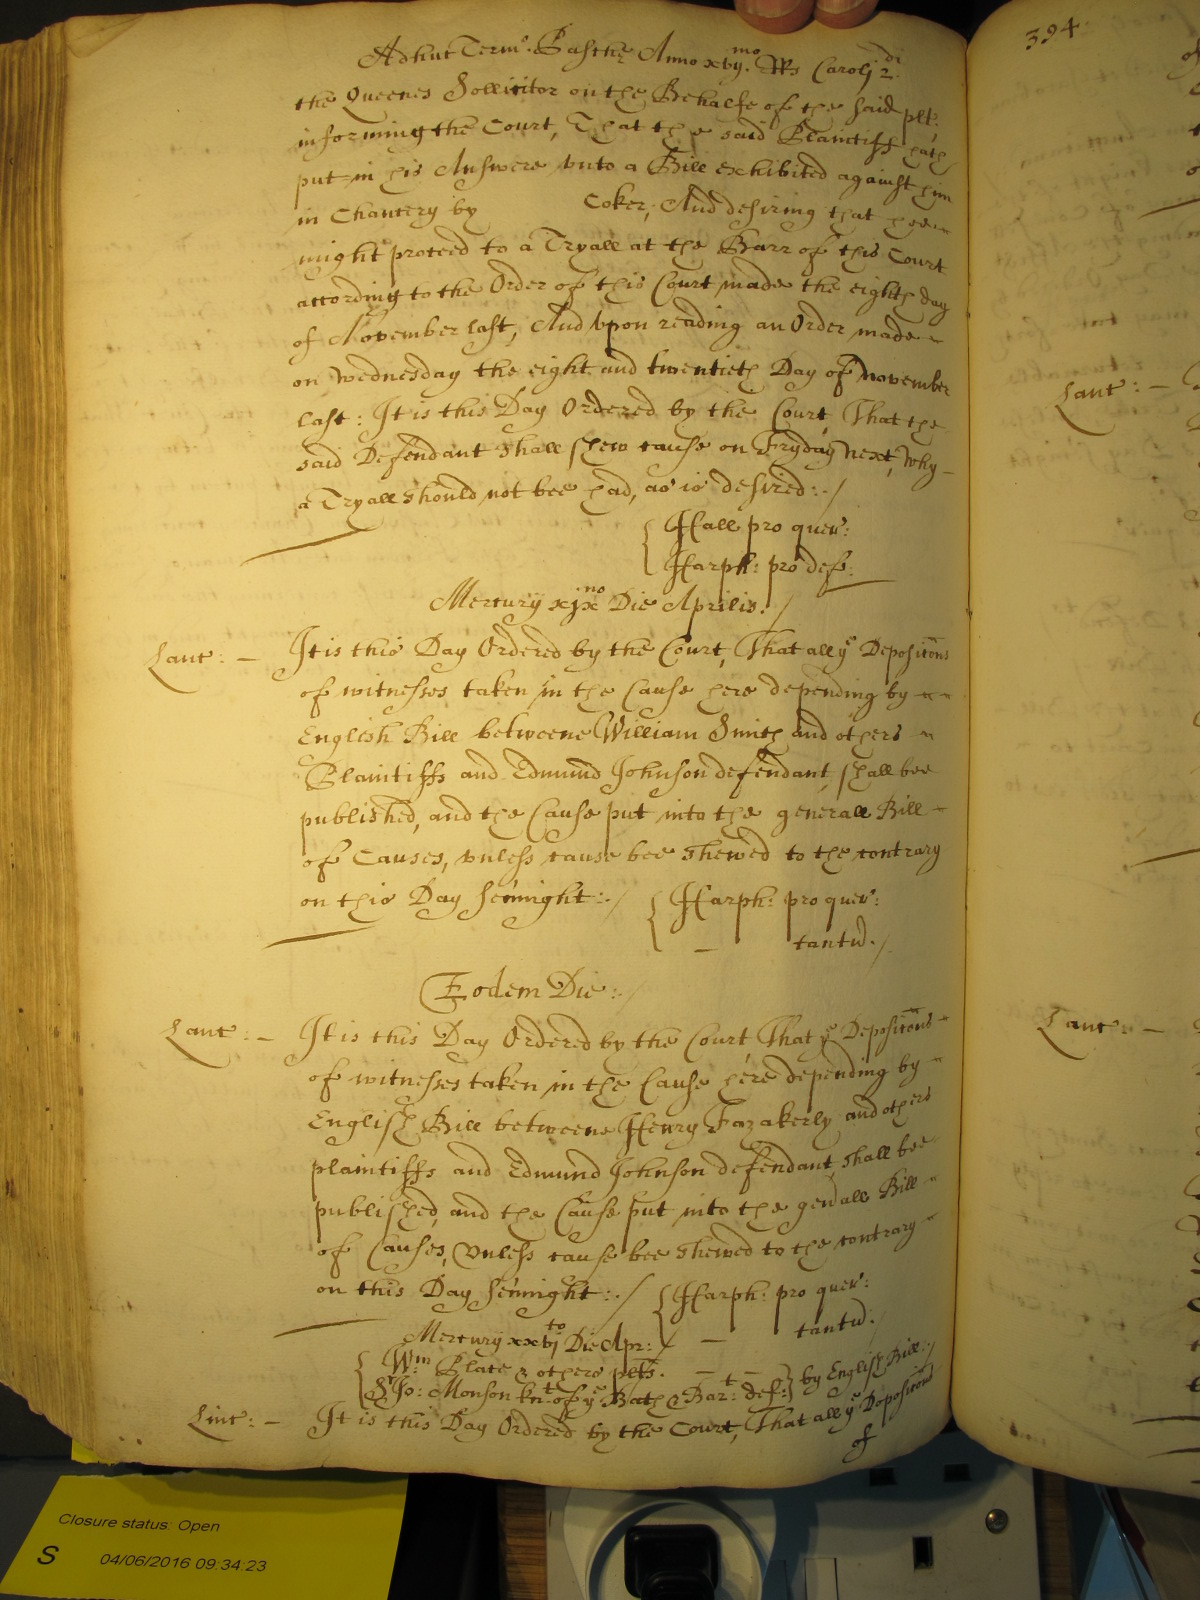 Adhuc Term: Pasche Anno xvij.mo RRs Carolj 2.di
the Queenes Sollicitor on the Behalfe of the said plt:
informing the Court, That the said Plaintiff hath
put in his Answere vnto a Bill exhibited against him
in Chancery by Coker; And desiring that hee
might proceed to a Tryall at the Barr of this Court
according to the Order of this Court made the eighth day
of November last, And vpon reading an Order made
on Wednesday the eight and twentieth Day of November
last: It is this Day Ordered by the Court, That the
said Defendant shall shew cause on Fryday next, why
a Tryall should not bee had, as is desired:./
Hall pro quer:
Harph: pro def:
Mercurij xjx.no Die Aprilis./
Lanc: – It is this Day Ordered by the Court, That all ye Depositons
of witnesses taken in the Cause here depending by
English Bill betweene William Smith and others
Plaintiffs and Edmund Johnson defendant, shall bee
published, and the Cause put into the generall Bill
of Causes, vnless cause bee shewed to the contrary
on this Day Sennight:./
Harph: pro quer:
– tantu./
Eodem Die:./
Lanc: – It is this Day Ordered by the Court That ye Depositons
of witnesses taken in the Cause here depending by
English Bill betweene Henry Fazakerly and others
plaintiffs and Edmund Johnson defendant, shall bee
published, and the Cause put into the genall Bill
of Causes, vnless cause bee shewed to the contrary
on this Day Sennight:./
Harph: pro quer:
– tantu./
Mercurij xxvj to Die Apr:
Wm: Plate & others plts.
Sr Jo: Monson knt of ye Bath & Bart: def: by English Bill:/
Linc: – It is this Day Ordered by the Court, That all ye Depositons
of
394
Lanc: –
Lanc: –
Closure status: Open
S 04/06/2016 09:34:23